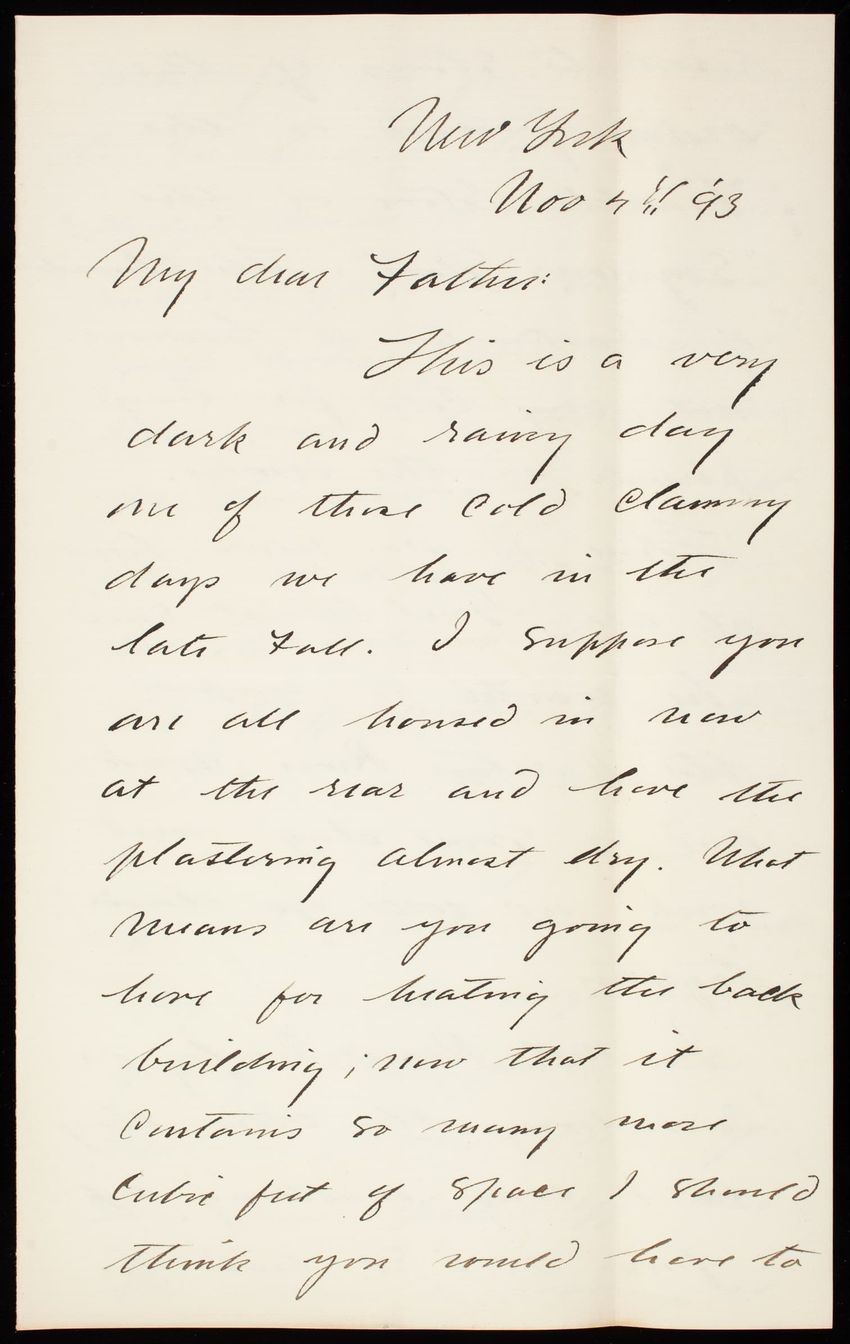 New York
Nov 4th '93
My dear Father:
This is a very
dark and rainy day
one of those cold clammy
days we have in the
late Fall. I suppose you
are all housed in now
at the rear and have the
plastering almost dry. What
means are you going to
have for heating the back
building; now that it
contains so many more
cubic feet of space I should
think you would have to